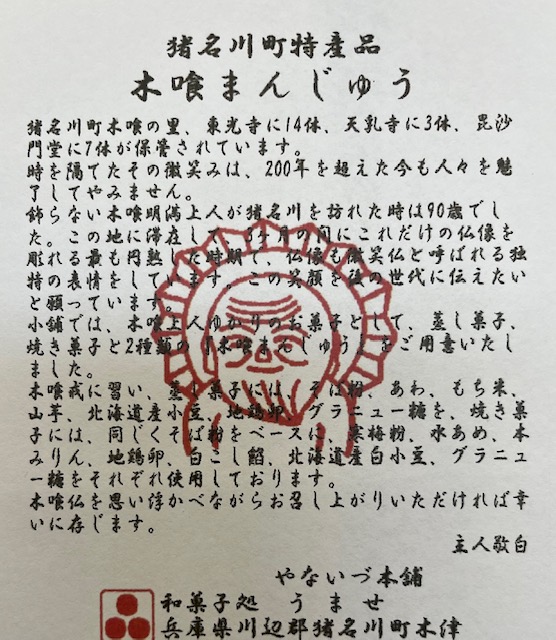 猪名川町特産品
木喰まんじゅう
猪名川町木喰の里、東光寺に14体、天乳寺に3体、毘沙
門堂に7体が保管されています。
時を隔てたその微笑みは、200年を超えた今も人々を魅
了してやみません。
飾らない木喰明満上人が猪名川を訪れた時は90歳でし
た。この地に滞在して、3ヶ月の間にこれだけの仏像を
彫れる最も円熟した時期で、仏像も微笑仏と呼ばれる独
特の表情をしています。この笑顔を後の世代に伝えたい
と願っています。
小舗では、木喰上人ゆかりのお菓子として、蒸し菓子、
焼き菓子と2種類の「木喰まんじゅう」をご用意いたし
ました。
木喰戒に習い、蒸し菓子には、そば粉、あわ、もち米、
山芋、北海道産小豆、地鶏卵、グラニュー糖を、焼き菓
子には、同じくそば粉をベースに、寒梅粉、水あめ、本
みりん、地鶏卵、白こし餡、北海道産白小豆、グラニュ
ー糖をそれぞれ使用しております。
木喰仏を思い浮かべながらお召し上がりいただければ幸
いに存じます。
主人敬白
やないづ本舗
和菓子処 うませ
兵庫県川辺郡猪名川町木津